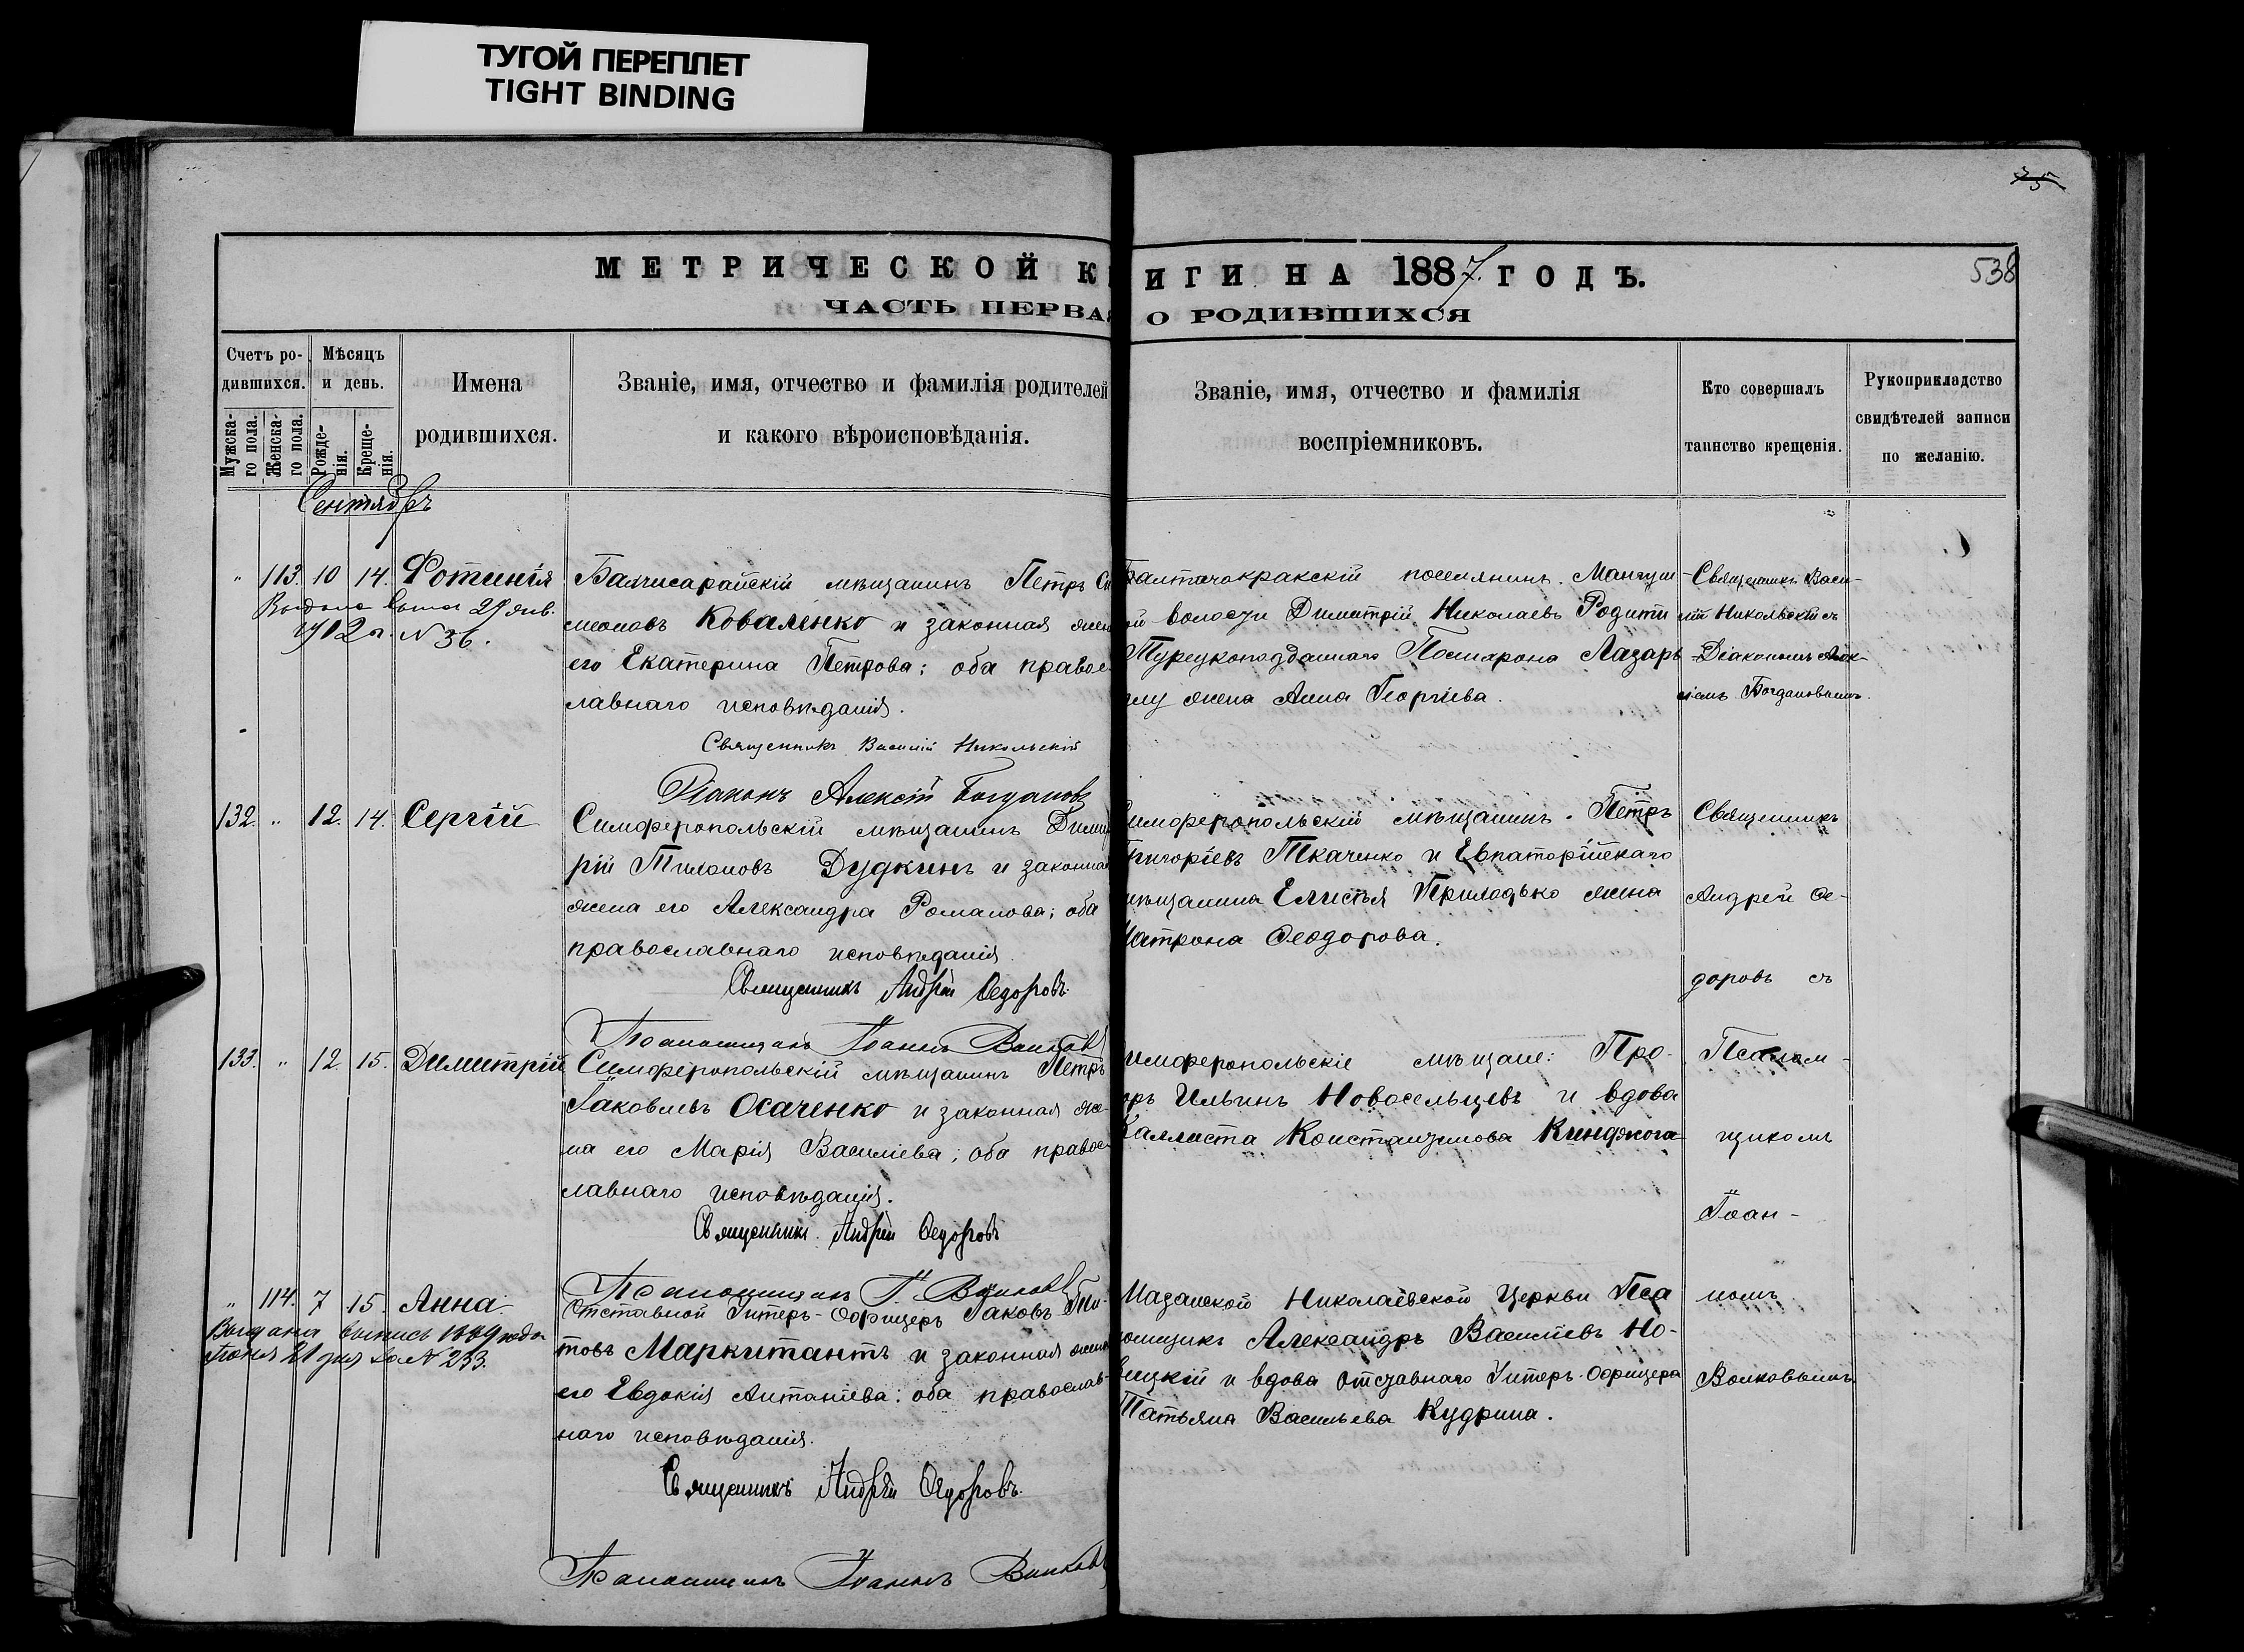 ТУГОЙ ПЕРЕПЛЕТ
TIGHT BINDING
35
538
МЕТРИЧЕСКОЙ К
ИГИ НА 1887 ГОДЪ.
ЧАСТЬ ПЕРВАЯ
О РОДИВШИХСЯ
Счетъ ро-
дившихся.
Мужска-
го пола.
Женска-
го пола.
Мѣсяцъ
и день.
Рожде-
нія.
Креще-
нія.
Имена
родившихся.
Званіе, имя, отчество и фамилія родителей
и какого вѣроисповѣданія.
Званіе, имя, отчество и фамилія
воспріемниковъ.
Кто совершалъ
таинство крещенія.
Рукоприкладство
свидѣтелей записи
по желанію.
Сентябрь
" 113. 10 14. Фотинія
29 янв.
1912 г. N 36.
Бахчисарайскій мѣщанинъ Петръ Си
меоновъ Коваленко и законная жен
его Екатерина Петрова; оба правос
лавнаго исповѣданія.
Священникъ Василій Никольскій
Діаконъ Алексій Богдановъ
поселянинъ. Мангуш-
ой волости Димитрій Николаевъ Родити
Турецкоподданнаго Лазарь
жена Анна Георгіева.
Священникъ Васи-
лій Никольскій съ
Діакономъ Алек-
сіемъ Богдановымъ.
132. " 12. 14. Сергій
Симферопольскій мѣщанинъ Димит
рій Дудкинъ и законная
жена его Александра Романова; оба
православнаго исповѣданія.
Священникъ Андрей Ѳедоровъ.
Псаломщикъ Іоаннъ Волковъ
имферопольскій мѣщанинъ. Петръ
Григоріевъ Ткаченко и Евпаторійскаго
мѣщанина Елисѣя Приходько жена
Матрона Ѳеодорова.
Священникъ
Андрей Ѳе-
доровъ съ
133. " 12. 15. Димитрій
Симферопольскій мѣщанинъ Петръ
Іаковлевъ Осаченко и законная же-
на его Марія Василіева; оба правос
лавнаго исповѣданія.
Священникъ Андрей Ѳедоровъ
Псаломщикъ І. Волковъ
имферопольскіе мѣщане: Про-
оръ Ильинъ Новосельцевъ и вдова
Каллиста Константинова
Псалом-
щикомъ
Іоан-
" 114. 7 15. Анна
Выдана выпись 1889 года
Іюня 21 дня за N 233.
Отставной Унтеръ-Офицеръ Іаковъ Ти-
товъ Маркитантъ и законная жена
его Евдокія Антаніева: оба православ-
наго исповѣданія.
Священникъ Андрей Ѳедоровъ.
Псаломщикъ Іоаннъ Волковъ
Мазанской Николаевской Церкви Пса
омщикъ Александръ Василіевъ Но-
вицкій и вдова отставнаго Унтеръ-Офицера
Татьяна Васильева Кудрина.
номъ
Волковымъ.